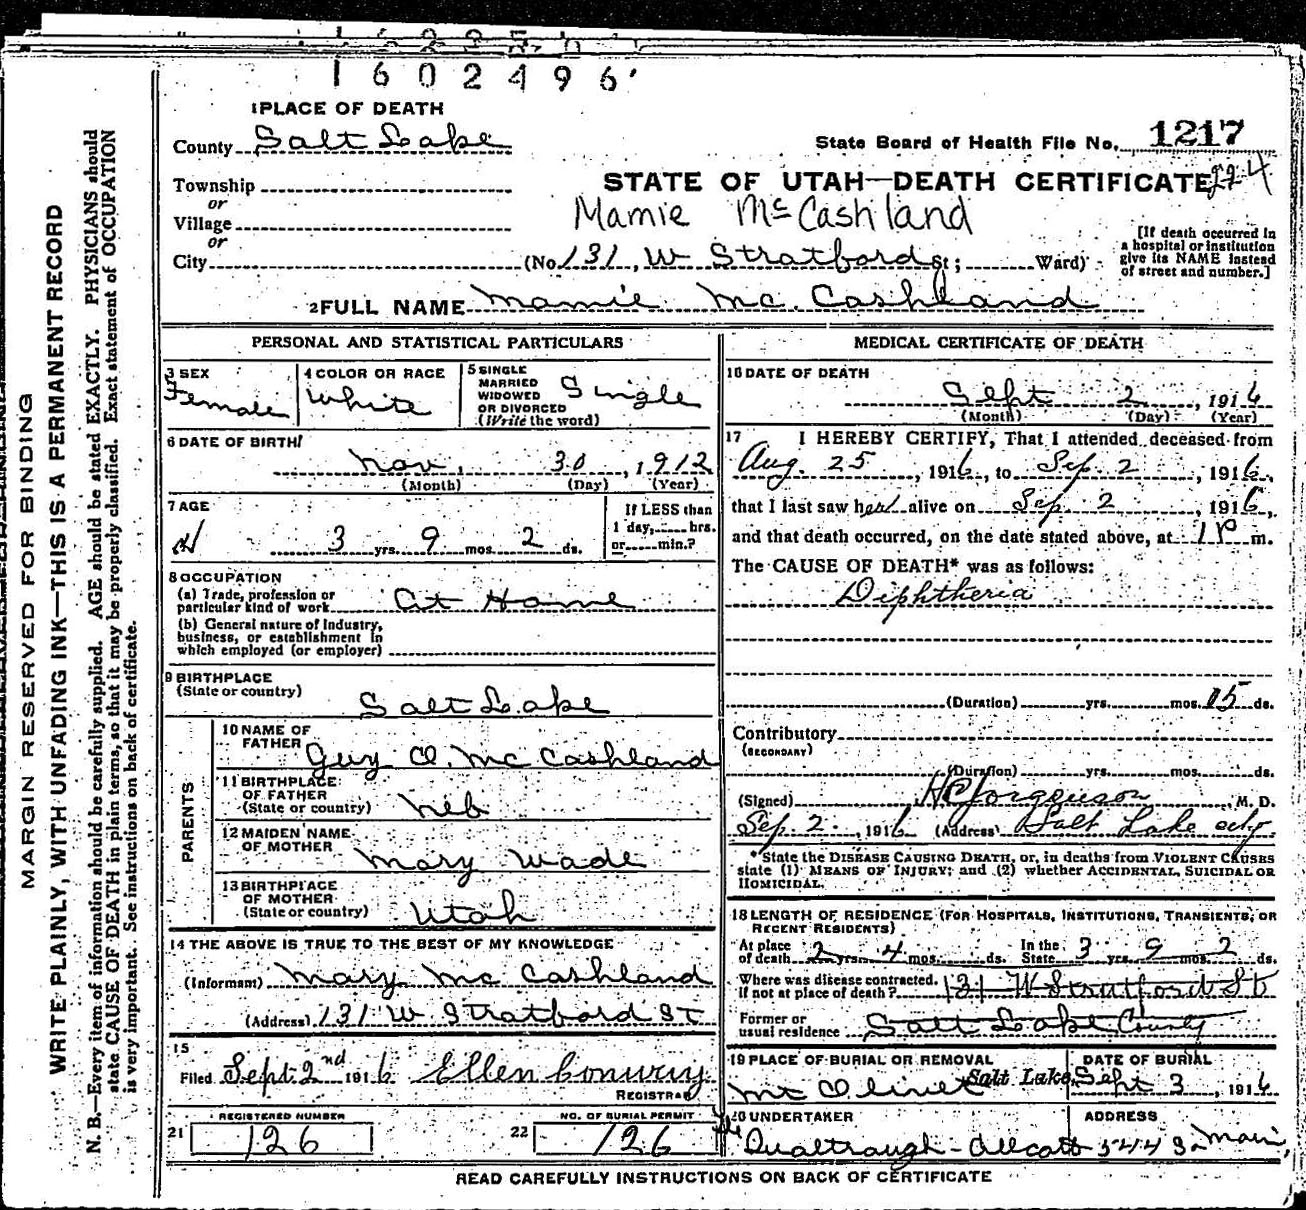 1602496
1 PLACE OF DEATH
County Salt Lake
State Board of Health File No. 1217
Township
224
or
STATE OF UTAH—DEATH CERTIFICATE
Village
Mamie McCashland
or
City (No. 131, W Stratford St; Ward)
[If death occurred in
a hospital or institution
give its NAME instead
of street and number.]
2 FULL NAME Mamie Mc. Cashland
MARGIN RESERVED FOR BINDING
WRITE PLAINLY, WITH UNFADING INK—THIS IS A PERMANENT RECORD
N. B.—Every item of information should be carefully supplied. AGE should be stated EXACTLY. PHYSICIANS should
state CAUSE OF DEATH in plain terms, so that it may be properly classified. Exact statement of OCCUPATION
is very important. See instructions on back of certificate.
PERSONAL AND STATISTICAL PARTICULARS
3 SEX
Female
4 COLOR OR RACE
White
5 SINGLE
MARRIED
WIDOWED
OR DIVORCED
(Write the word)
Single
6 DATE OF BIRTH
Nov. 30, 1912
(Month) (Day) (Year)
7 AGE
3 yrs. 9 mos. 2 ds.
If LESS than
1 day, hrs.
or min.?
8 OCCUPATION
(a) Trade, profession or
particular kind of work At Home
(b) General nature of industry,
business, or establishment in
which employed (or employer)
9 BIRTHPLACE
(State or country)
Salt Lake
PARENTS
10 NAME OF
FATHER Guy O. Mc Cashland
11 BIRTHPLACE
OF FATHER
(State or country) Neb
12 MAIDEN NAME
OF MOTHER Mary Wade
13 BIRTHPLACE
OF MOTHER
(State or country) Utah
14 THE ABOVE IS TRUE TO THE BEST OF MY KNOWLEDGE
(Informant) Mary Mc Cashland
(Address) 131 W Stratford St
15
Filed Sept. 2nd 1916 Ellen Conway
REGISTRAR
REGISTERED NUMBER
21 126
NO. OF BURIAL PERMIT
22 126
MEDICAL CERTIFICATE OF DEATH
16 DATE OF DEATH
Sept 2, 1916
(Month) (Day) (Year)
17 I HEREBY CERTIFY, That I attended deceased from
Aug. 25, 1916, to Sep. 2, 1916,
that I last saw her alive on Sep. 2, 1916,
and that death occurred, on the date stated above, at 1 P m.
The CAUSE OF DEATH* was as follows:
Diphtheria
(Duration) yrs. mos. 15 ds.
Contributory
(SECONDARY)
(Duration) yrs. mos. ds.
(Signed) M. D.
Sep. 2, 1916 (Address) Salt Lake city
*State the DISEASE CAUSING DEATH, or, in deaths from VIOLENT CAUSES
state (1) MEANS OF INJURY; and (2) whether ACCIDENTAL, SUICIDAL OR
HOMICIDAL.
18 LENGTH OF RESIDENCE (FOR HOSPITALS, INSTITUTIONS, TRANSIENTS, OR
RECENT RESIDENTS)
At place
of death 2 yrs. 4 mos. ds.
In the
State 3 yrs. 9 mos. 2 ds.
Where was disease contracted,
if not at place of death? 131 W Stratford St
Former or
usual residence Salt Lake County
19 PLACE OF BURIAL OR REMOVAL
Mt Olivet Salt Lake
DATE OF BURIAL
Sept 3, 1916
20 UNDERTAKER
ADDRESS
544 S Main
READ CAREFULLY INSTRUCTIONS ON BACK OF CERTIFICATE